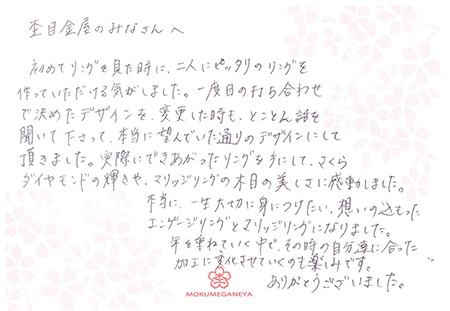 杢目金屋のみなさんへ
初めてリングを見た時に、二人にピッタリのリングを
作っていただける気がしました。一度目の打ち合わせ
で決めたデザインを、変更した時も、とことん話を
聞いて下さって、本当に望んでいた通りのデザインにして
頂きました。実際にできあがったリングを手にして、さくら
ダイヤモンドの輝きや、マリッジリングの木目の美しさに感動しました。
本当に、一生大切に身につけたい、想いの込もった
エンゲージリングとマリッジリングになりました。
年を重ねていく中で、その時の自分達に合った
加工に変化させていくのも楽しみです。
ありがとうございました。
MOKUMEGANEYA